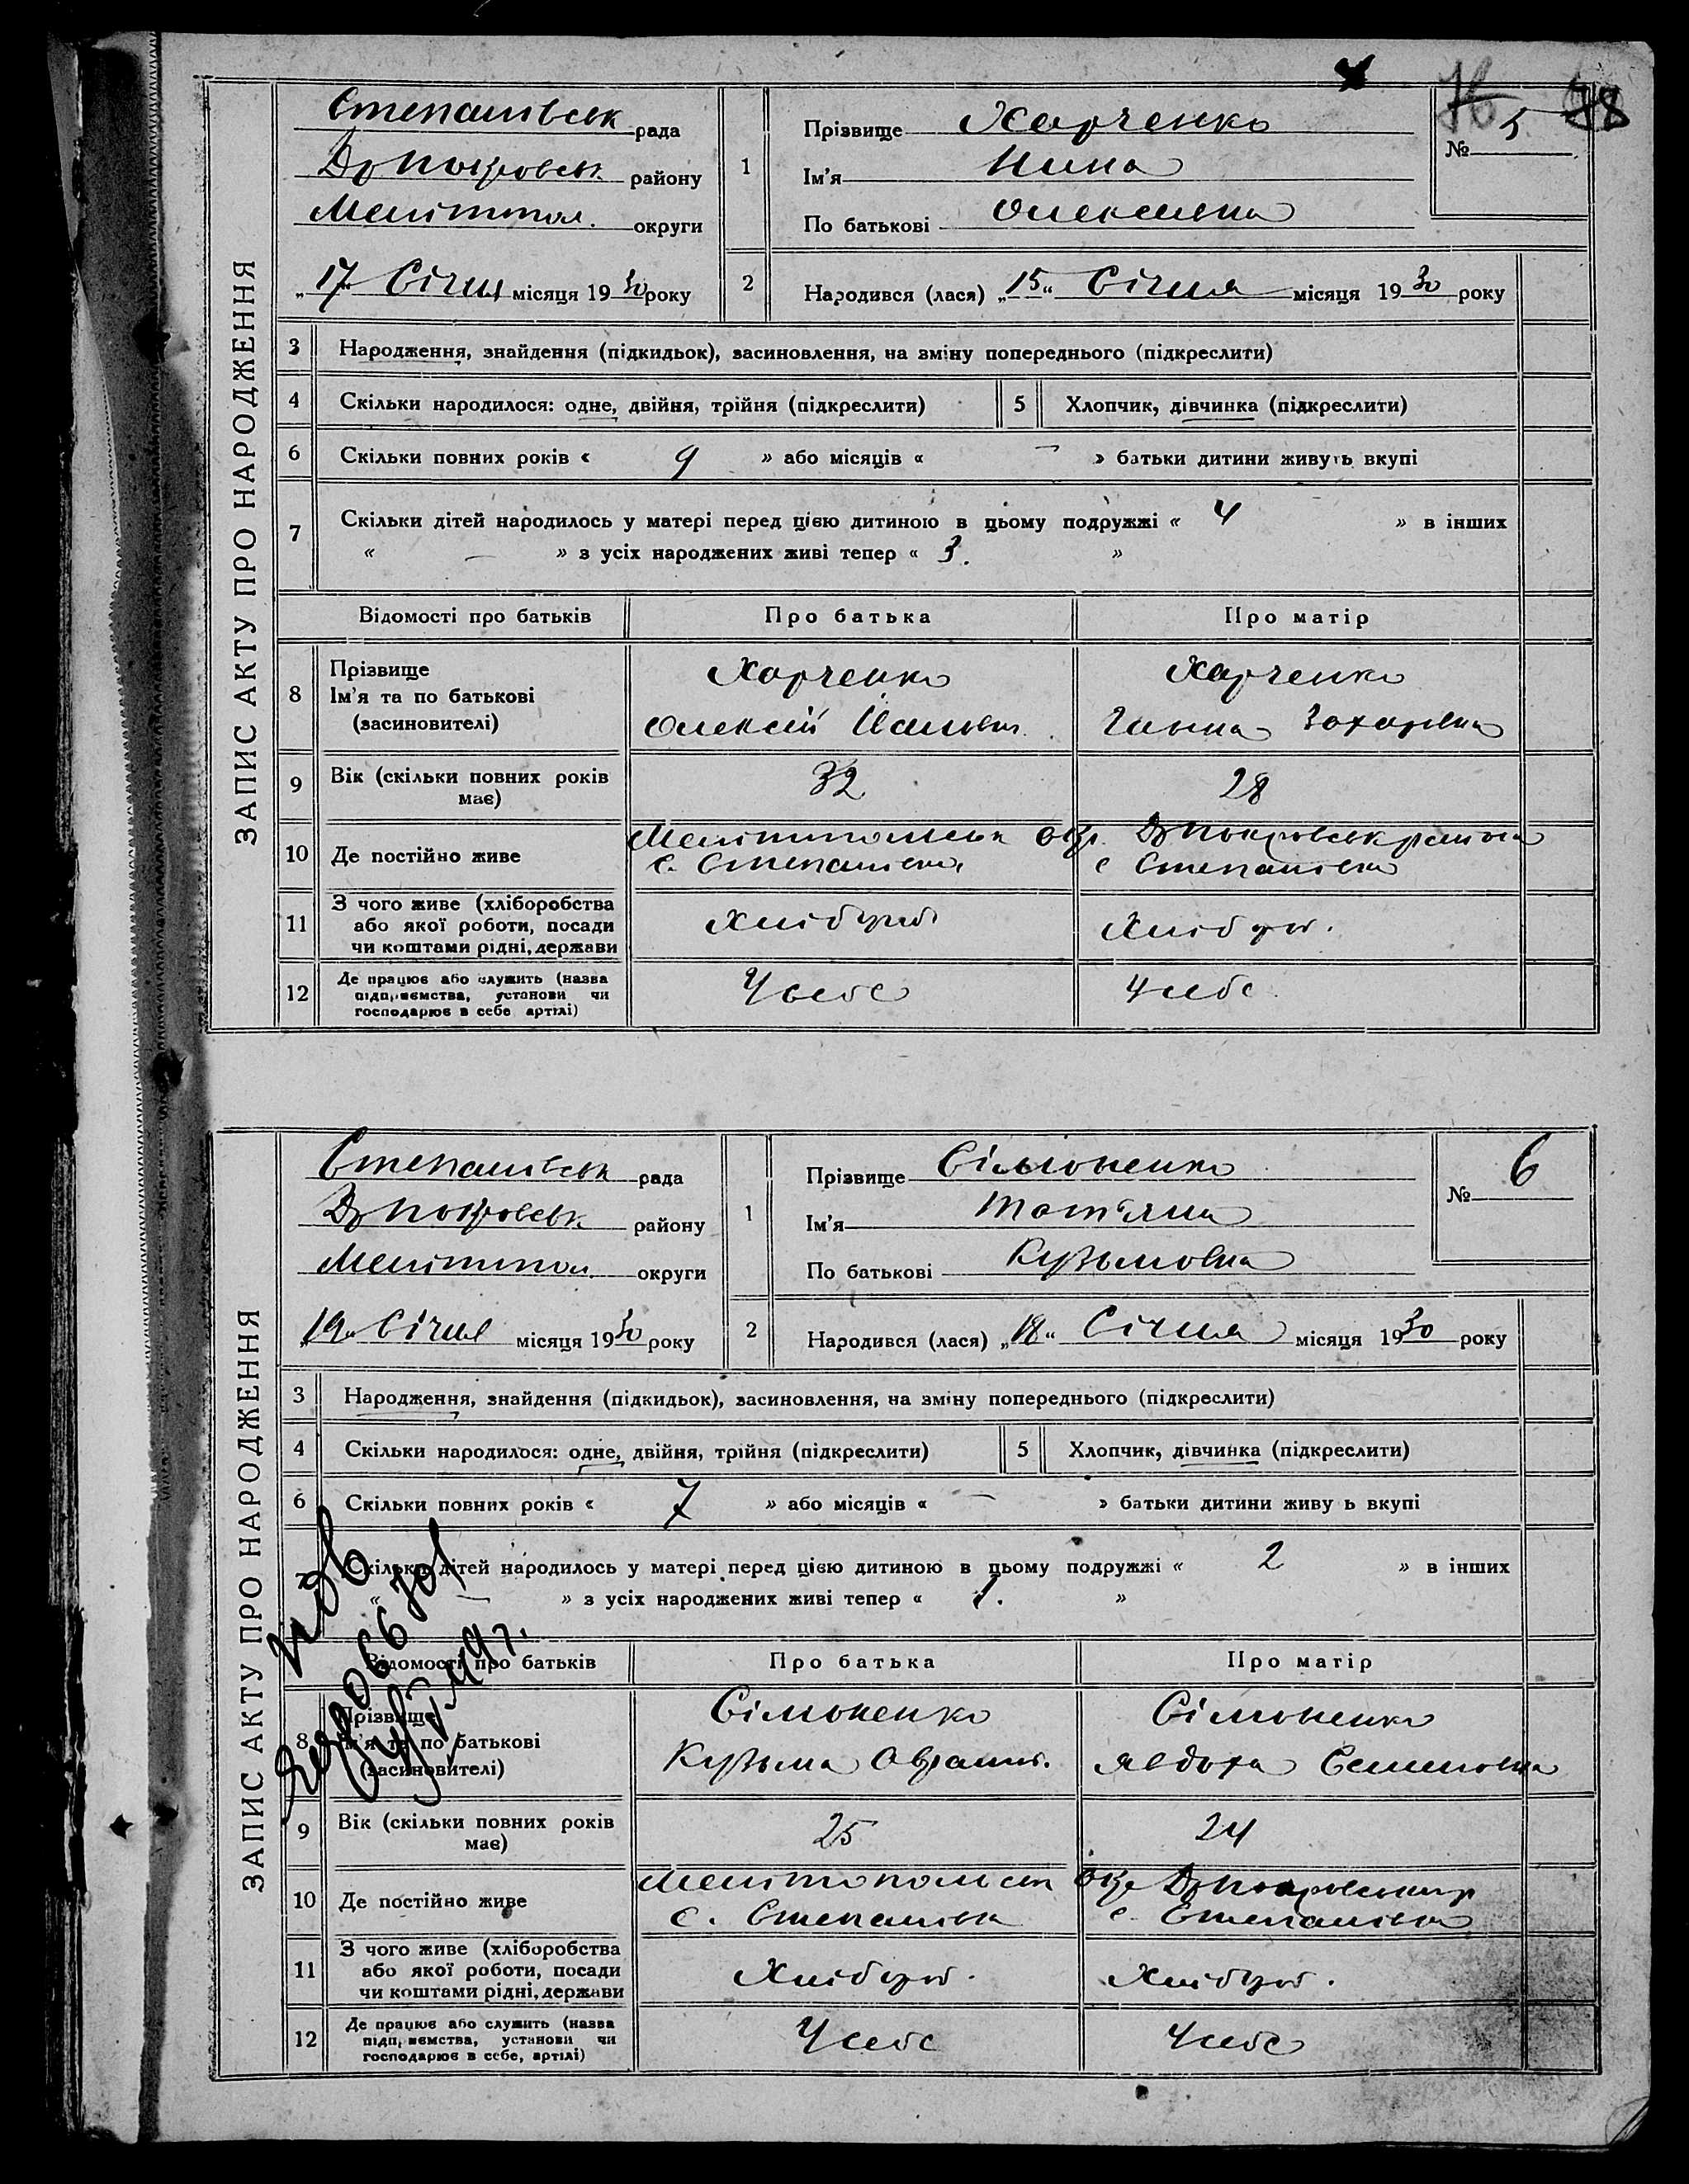 ЗАПИС АКТУ ПРО НАРОДЖЕННЯ
78
Степанівськ рада
Др Покровськ району
Мелітопол. округи
„17“ Січня місяця 1930 року
1
Прізвище Харченко
Ім'я Нина
По батькові Олексіевна
№ 5
2
Народився (лася) „15“ Січня місяця 1930 року
3 Народження, знайдення (підкидьок), засиновлення, на зміну попереднього (підкреслити)
4 Скільки народилося: одне, двійня, трійня (підкреслити) 5 Хлопчик, дівчинка (підкреслити)
6 Скільки повних років « 9 » або місяців « — » батьки дитини живуть вкупі
7 Скільки дітей народилось у матері перед цією дитиною в цьому подружжі « 4 » в інших
« — » з усіх народжених живі тепер « 3. »
Відомості про батьків Про батька Про матір
8 Прізвище Харченко Харченко
Ім'я та по батькові Олексій Іванович Ганна Захарівна
(засиновителі)
9 Вік (скільки повних років має) 32 28
10 Де постійно живе Мелітопольськ окр. Др Покровськ району
с. Степанівка с Степанівка
11 З чого живе (хліборобства Хлібороб Хлібороб.
або якої роботи, посади
чи коштами рідні, держави
12 Де працює або служить (назва У себе У себе
підприємства, установи чи
господарює в себе, артілі)
ЗАПИС АКТУ ПРО НАРОДЖЕННЯ
Степанівськ рада
Др Покровськ району
Мелітопол. округи
„19“ Січня місяця 1930 року
1
Прізвище Сімоненко
Ім'я Тат'яна
По батькові Кузьмовна
№ 6
2
Народився (лася) „18“ Січня місяця 1930 року
3 Народження, знайдення (підкидьок), засиновлення, на зміну попереднього (підкреслити)
4 Скільки народилося: одне, двійня, трійня (підкреслити) 5 Хлопчик, дівчинка (підкреслити)
6 Скільки повних років « 7 » або місяців « — » батьки дитини живу ь вкупі
Скільки дітей народилось у матері перед цією дитиною в цьому подружжі « 2 » в інших
« — » з усіх народжених живі тепер « 1. »
Відомості про батьків Про батька Про матір
8 Прізвище Сімоненко Сімоненко
Ім'я та по батькові Кузьма Аврамов. Явдоха Семеновна
(засиновителі)
9 Вік (скільки повних років має) 25 24
10 Де постійно живе Мелітопольськ окр Др Покровськ р
с. Степанівка с. Степанівка
11 З чого живе (хліборобства Хлібороб. Хлібороб.
або якої роботи, посади
чи коштами рідні, держави
12 Де працює або служить (назва У себе У себе
підприємства, установи чи
господарює в себе, артілі)